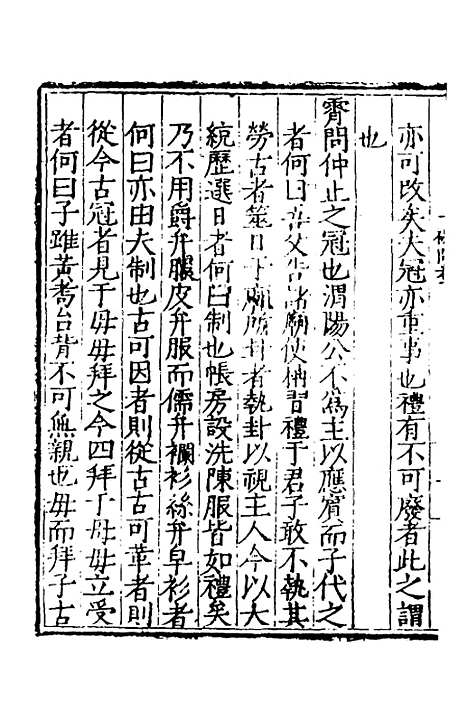 亦可改矣夫冠亦重事也禮有不可廢者此之謂
也
霄問仲止之冠也渭陽公不為主以應賔而子代之
者何曰吾父告諸廟使枏習禮于君子敢不執其
勞古者筮日于廟所卦者執卦以視主人今以大
統歷選日者何曰制也帳房設洗陳服皆如禮矣
乃不用爵弁服皮弁服而儒弁襴衫絲弁皁衫者
何曰亦由夫制也古可因者則從古古可革者則
從今古冠者見于母母拜之今四拜于母母立受
者何曰子雖黃耇台背不可無親也母而拜子古